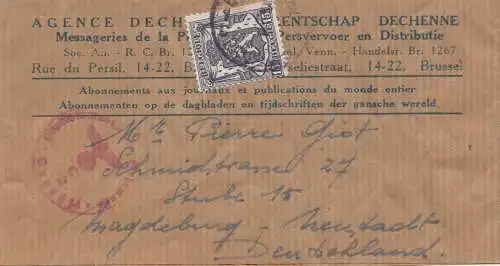 AGENCE DECH ENTSCHAP DECHENNE
Messageries de la P Persvervoer en Distributie
Soc. An. - R. C. Br. 12 Venn. - Handelsr. Br. 1267
Rue du Persil, 14-22, B seliestraat, 14-22, Brussel
BELGIQUE 15
Abonnements aux journaux et publications du monde entier
Abonnementen op de dagbladen en tijdschriften der gansche wereld
Mr Pierre Giot
Schmidtstrasse 27
Stube 15
Magdeburg - Neustadt
Deutschland.